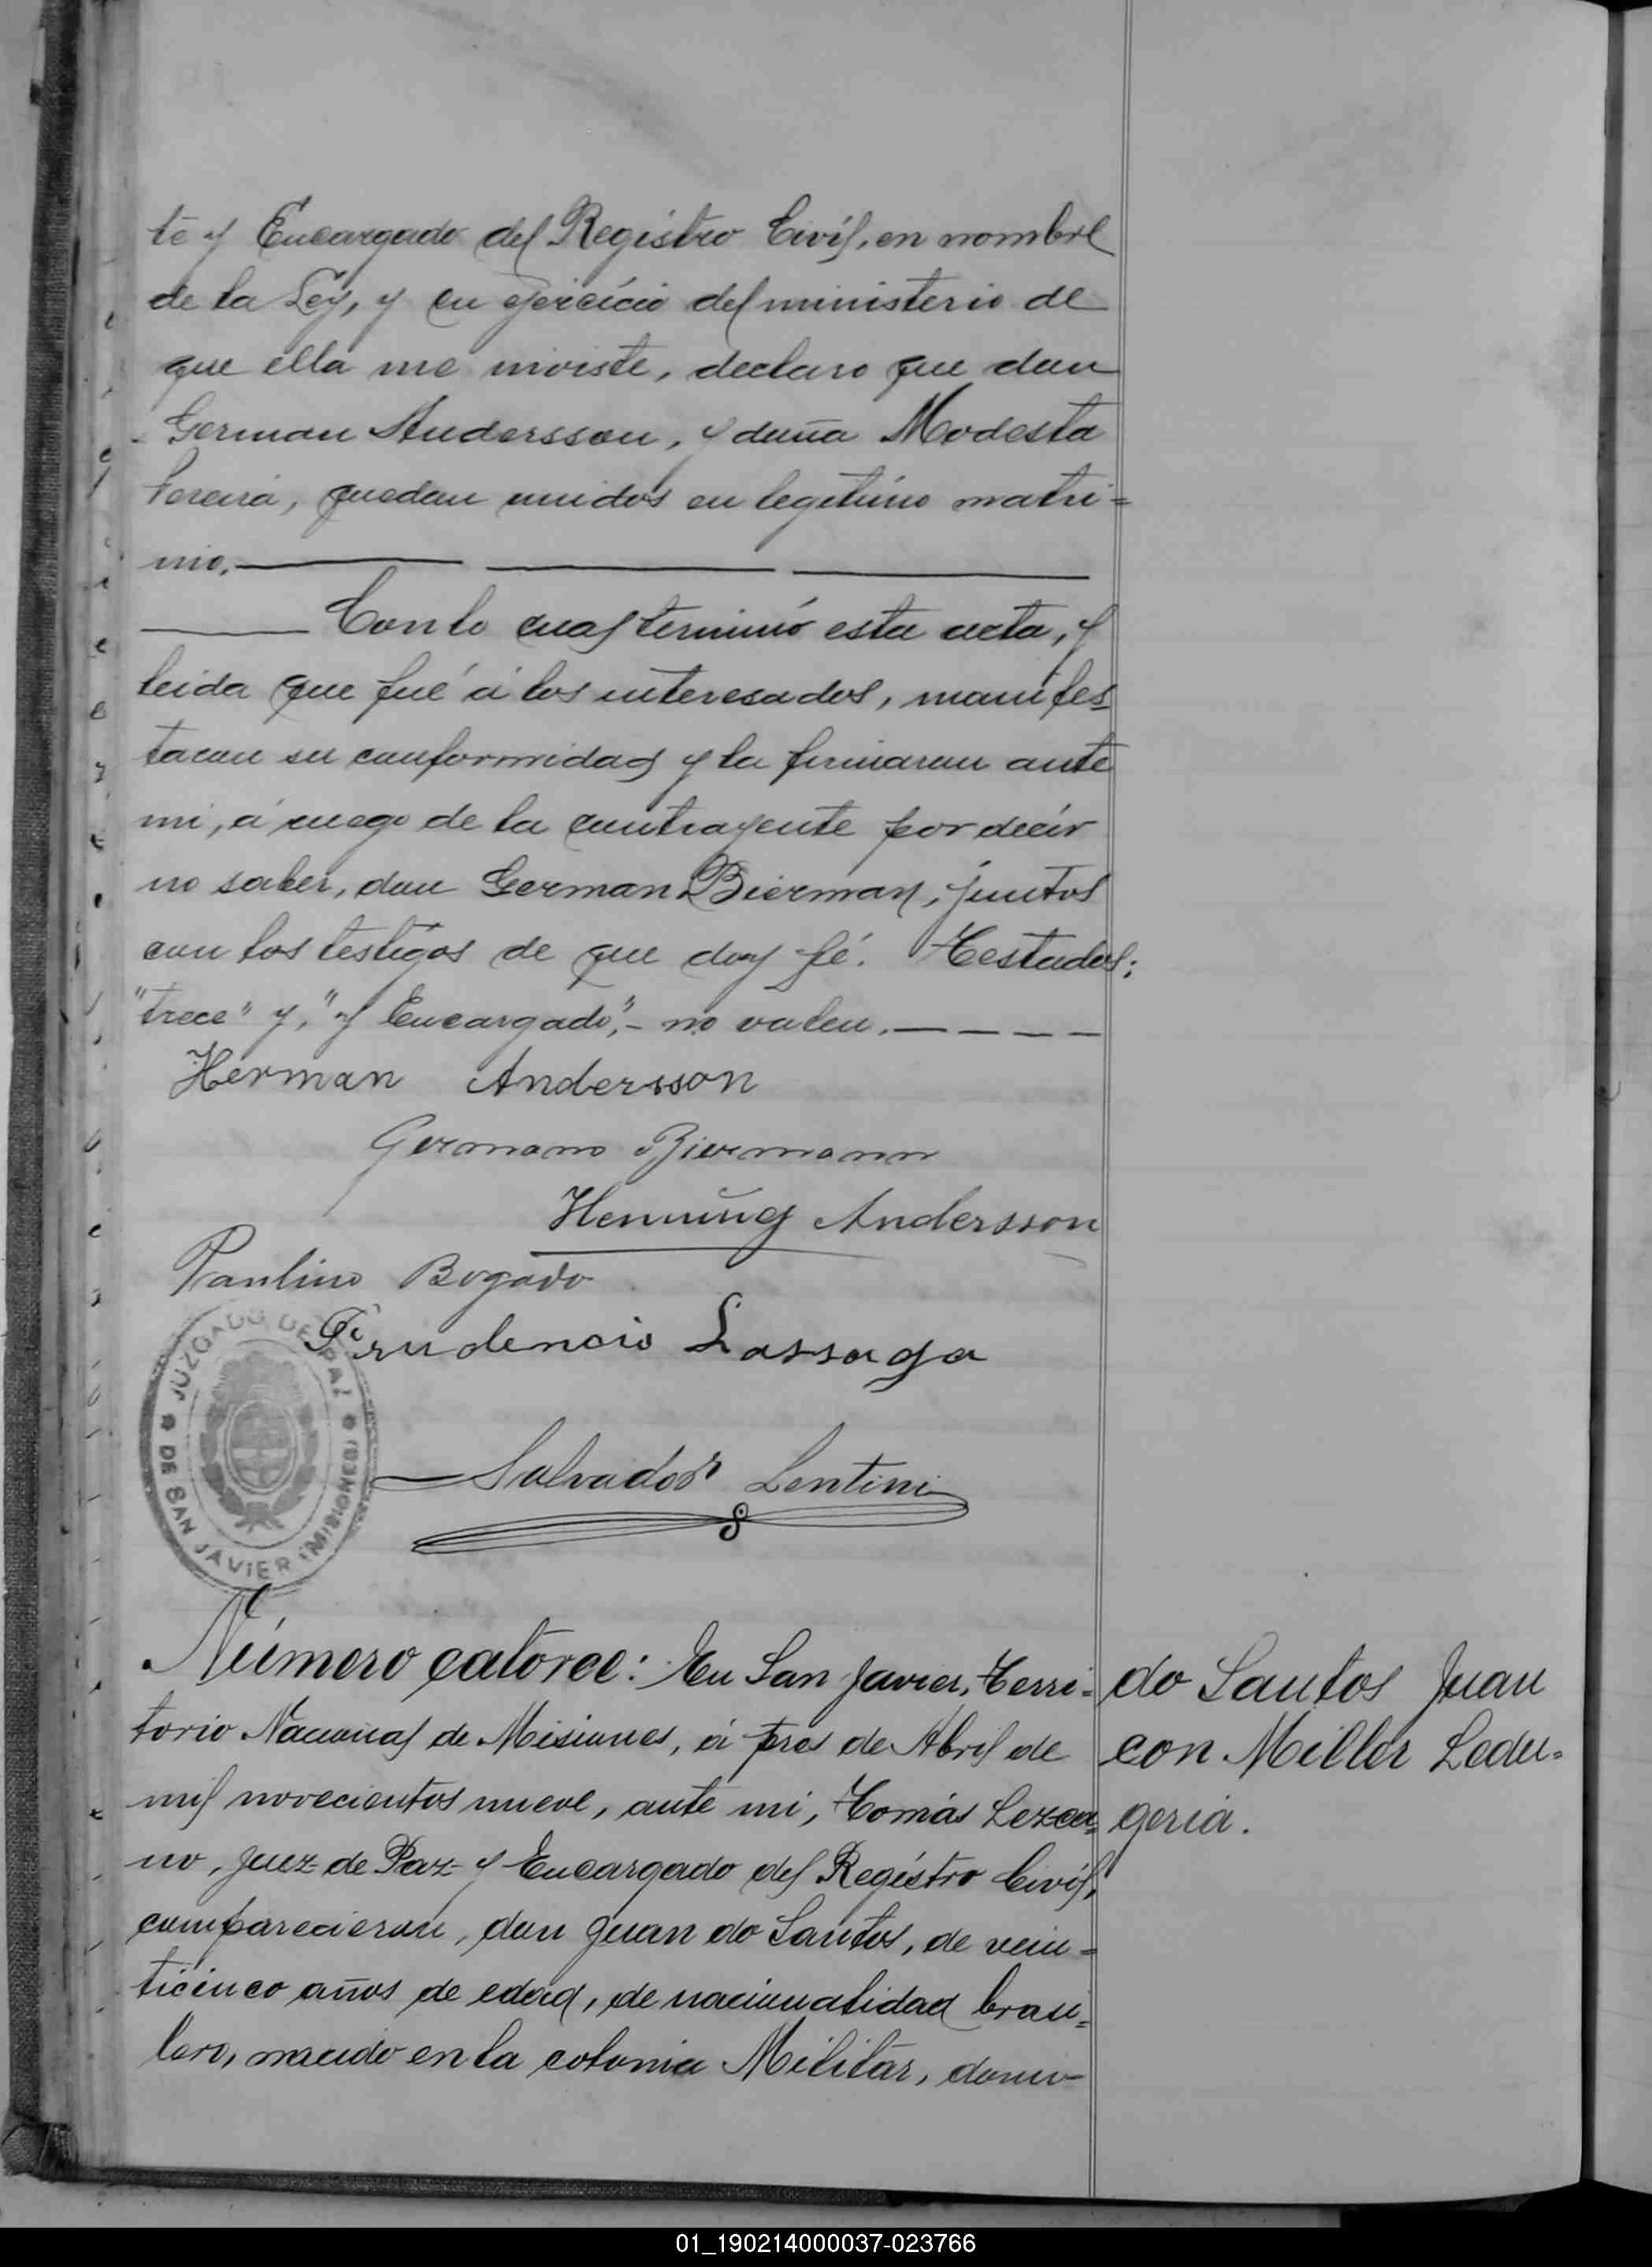 te y Encargado del Registro Civil, en nombre
de la Ley, y en ejercicio del ministerio de
que ella me inviste, declaro que don
German Andersson, y doña Modesta
Pereira, quedan unidos en legitimo matri=
nio.
Con lo cual terminó esta acta, y
leida que fué á los interesados, manifes
taron su conformidad y la firmaron ante
mi, á ruego de la contrayente por decir
no saber, don German Bierman, juntos
con los testigos de que doy fé. Testados:
"trece" y, "y Encargado",- no valen.
Herman Andersson
Germano Biermann
Henning Andersson
Paulino Bogado
Prudencio Lassaga
JUZGADO DE PAZ DE SAN JAVIER (MISIONES)
Salvador Lentini
Número catorce: En San Javier, Terri=
torio Nacional de Misiones, á tres de Abril de
mil novecientos nueve, ante mi, Tomás Lezca=
no, Juez de Paz y Encargado del Registro Civil,
comparecieron, don Juan do Santos, de vein=
ticinco años de edad, de nacionalidad brasi=
lero, nacido en la colonia Militar, domi-
do Santos Juan
con Miller Ledu=
geria.
01_190214000037-023766